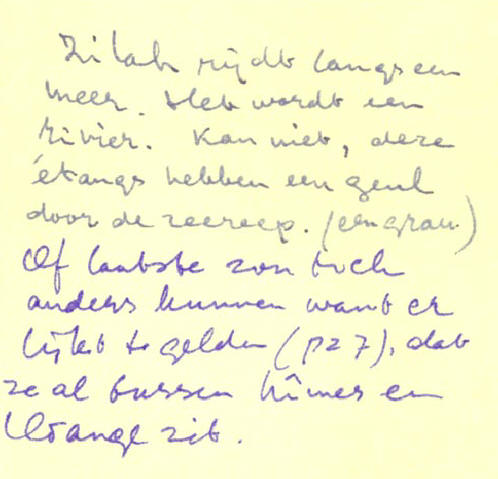 Zilah rijdt langs een
meer. Het wordt een
rivier. Kan niet, deze
étangs hebben een geul
door de zeereep. (een grau.)
Of laatste zou toch
anders kunnen want er
lijkt te gelden (p27), dat
ze al tussen Nîmes en
Orange zit.